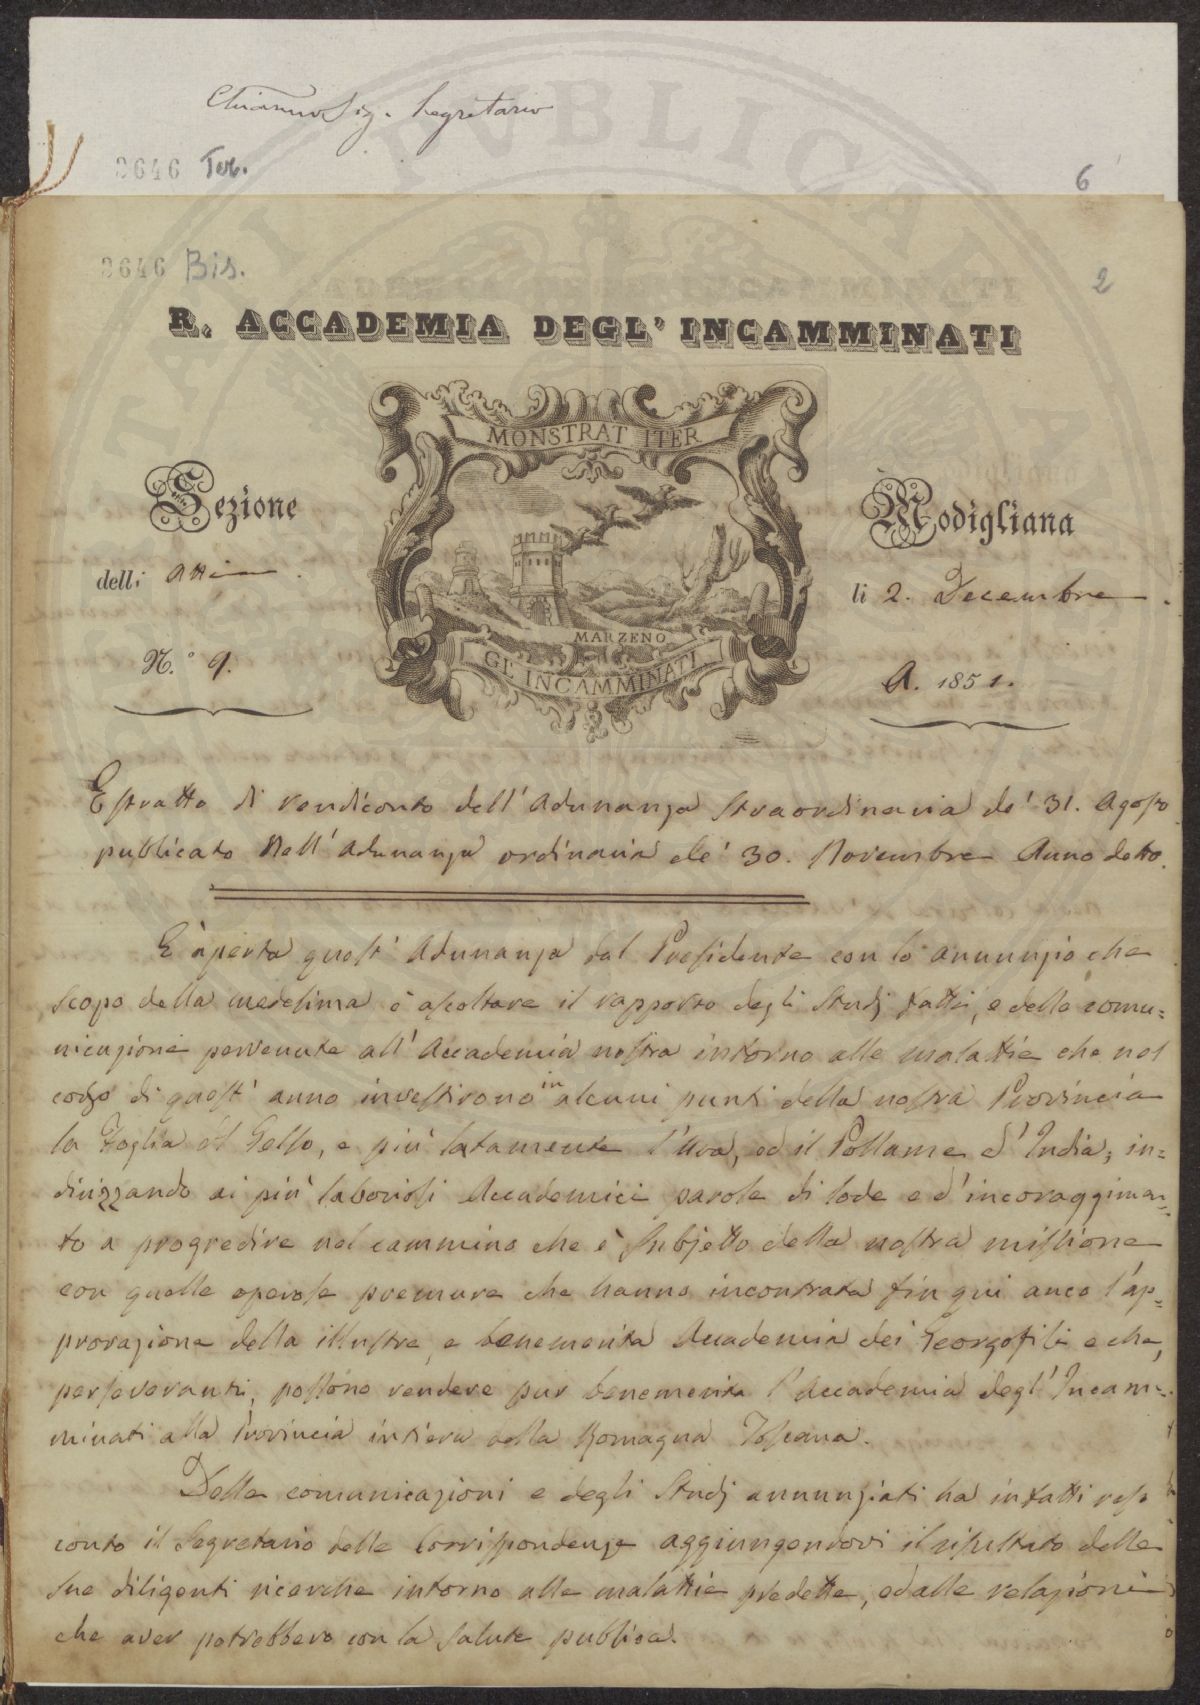 Chiarmo Sig. Segretario
3646 Ter.
6
3646 Bis.
2
R. ACCADEMIA DEGL' INCAMMINATI
MONSTRAT ITER
Sezione
Modigliana
delli Atti
li 2. Decembre
MARZENO
GL' INCAMMINATI
N.° 9.
A. 1851.
Estratto di rendiconto dell' Adunanza straordinaria de' 31. Agosto
pubblicato nell' Adunanza ordinaria de' 30. Novembre Anno detto.
E' aperta quest' Adunanza dal Presidente con lo annunzio che
scopo della medesima è ascoltare il rapporto degli Studj fatti, e delle comu=
nicazione pervenute all' Accademia nostra intorno alle malattie che nel
corso di quest' anno investirono in alcuni punti della nostra Provincia
la Foglia del Gelso, e più latamente l'Uva, ed il Pollame d' India; in=
dirizzando ai più laboriosi Accademici parole di lode e d' incoraggimen=
to a progredire nel cammino che è subjetto della nostra missione
con quelle operose premure che hanno incontrata fin qui anco l'ap=
provazione della illustre, e benemerita Accademia dei Georgofili e che,
perseveranti, possono rendere pur benemerita l'Accademia degl' Incam=
minati alla Provincia intiera della Romagna Toscana.
Delle comunicazioni e degli Studj annunziati ha infatti reso
conto il Segretario delle Corrispondenze aggiungendovi il risultato delle
sue diligenti ricerche intorno alle malattie predette, ed alle relazioni
che aver potrebbero con la salute pubblica.